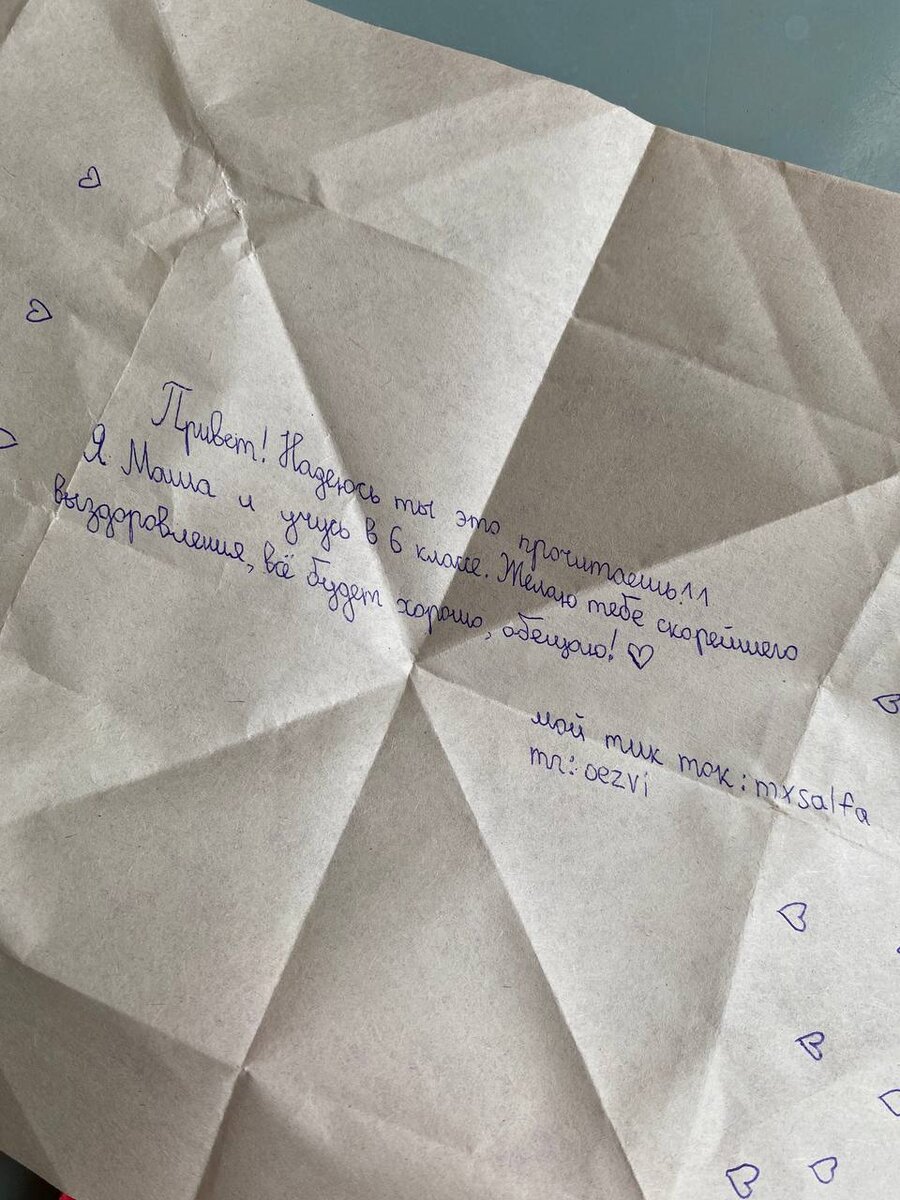 Привет! Надеюсь ты это прочитаешь!^^
Я Маша и учусь в 6 классе. Желаю тебе скорейшего
выздоровления, всё будет хорошо, обещаю! ♡
мой тик ток: mxsalfa
тг: oezvi